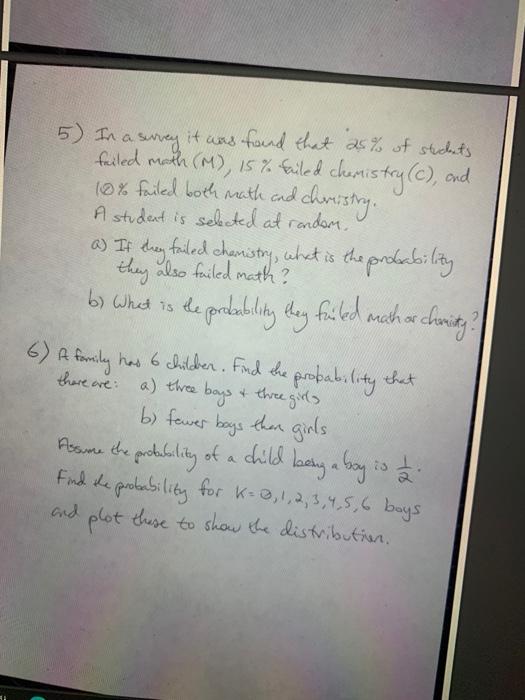 5) In a survey it was found that 25% of students
failed math (M), 15% failed chemistry (C), and
10% failed both math and chemistry.
A student is selected at random.
a) If they failed chemistry, what is the probability
they also failed math?
b) What is the probability they failed math or chemistry?
6) A family has 6 children. Find the probability that
there are: a) three boys + three girls
b) fewer boys than girls
Assume the probability of a child being a boy is 1/2.
Find the probability for K=0,1,2,3,4,5,6 boys
and plot these to show the distribution.